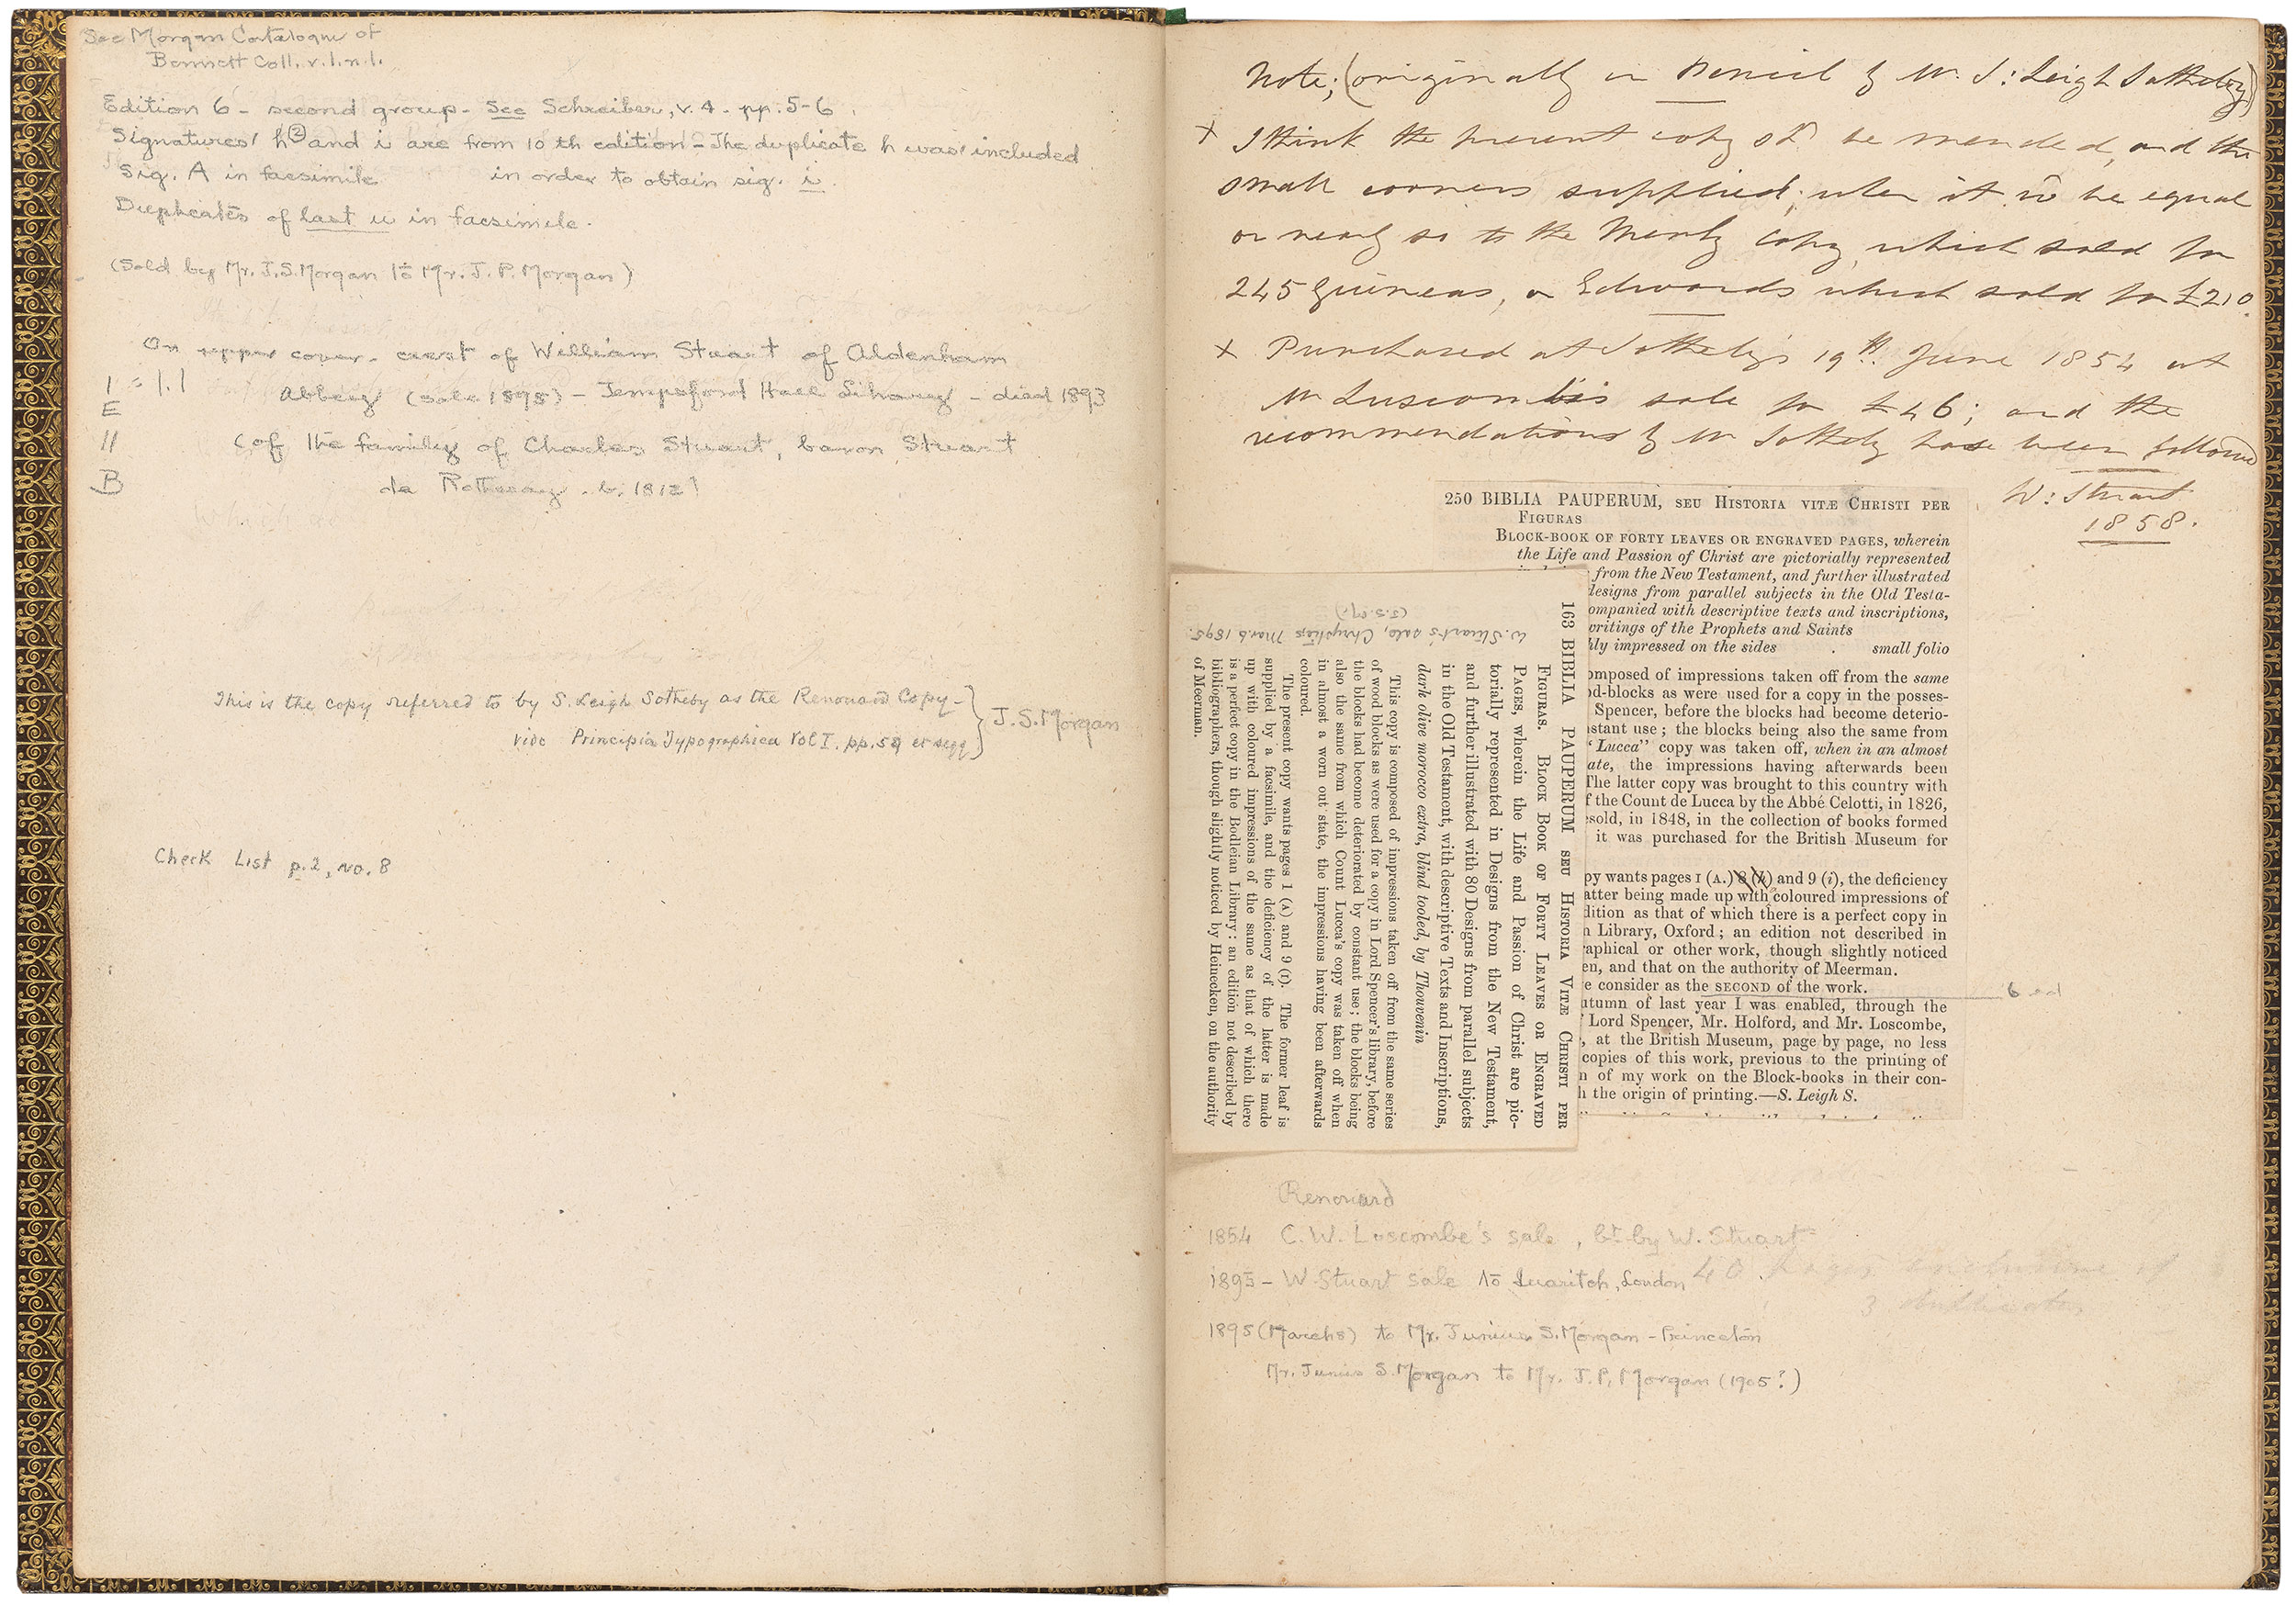 See Morgan Catalogue of
Bennett Coll. v.1.n.1.
Edition 6 - second group - See Schreiber, v. 4. pp. 5-6.
Signatures h② and i are from 10 th edition - The duplicate h was included
Sig. A in facsimile in order to obtain sig. i.
Duplicates of last u in facsimile.
(Sold by Mr. J.S. Morgan to Mr. J. P. Morgan)
On upper cover - crest of William Stuart of Aldenham
I = 1.1
Abbey (sale 1895) - Tempsford Hall Library - died 1893
E
11
(of the family of Charles Stuart, baron Stuart
B
de Rothesay
This is the copy referred to by S. Leigh Sotheby as the Renouard Copy -
vide Principia Typographica Vol I. pp. 59 et seqq.
J. S. Morgan
Check List p. 2, No. 8
Note; (originally in Pencil by Mr. S: Leigh Sotheby)
x I think the present copy shd. be mended, and the
small corners supplied; when it wd be equal
or nearly so to the Merly copy, which sold for
245 guineas, or Edwards which sold for £210.
x Purchased at Sotheby's 19th. June 1854 at
Mr Luscombe's sale for £46; and the
recommendations by Mr Sotheby have been followed
W: Stuart
1858.
250 BIBLIA PAUPERUM, SEU HISTORIA VITÆ CHRISTI PER
FIGURAS
BLOCK-BOOK OF FORTY LEAVES OR ENGRAVED PAGES, wherein
the Life and Passion of Christ are pictorially represented
from the New Testament, and further illustrated
designs from parallel subjects in the Old Testa-
ompanied with descriptive texts and inscriptions,
writings of the Prophets and Saints
hly impressed on the sides . small folio
omposed of impressions taken off from the same
d-blocks as were used for a copy in the posses-
Spencer, before the blocks had become deterio-
nstant use; the blocks being also the same from
"Lucca" copy was taken off, when in an almost
ate, the impressions having afterwards been
The latter copy was brought to this country with
f the Count de Lucca by the Abbé Celotti, in 1826,
sold, in 1848, in the collection of books formed
it was purchased for the British Museum for
py wants pages 1 (A.) 8 (h) and 9 (i), the deficiency
atter being made up with coloured impressions of
dition as that of which there is a perfect copy in
n Library, Oxford; an edition not described in
raphical or other work, though slightly noticed
en, and that on the authority of Meerman.
e consider as the SECOND of the work.
6 ed
utumn of last year I was enabled, through the
Lord Spencer, Mr. Holford, and Mr. Loscombe,
, at the British Museum, page by page, no less
copies of this work, previous to the printing of
n of my work on the Block-books in their con-
h the origin of printing.—S. Leigh S.
163 BIBLIA PAUPERUM SEU HISTORIA VITÆ CHRISTI PER
FIGURAS. BLOCK BOOK OF FORTY LEAVES OR ENGRAVED
PAGES, wherein the Life and Passion of Christ are pic-
torially represented in Designs from the New Testament,
and further illustrated with 80 Designs from parallel subjects
in the Old Testament, with descriptive Texts and Inscriptions,
dark olive morocco extra, blind tooled, by Thouvenin
This copy is composed of impressions taken off from the same series
of wood blocks as were used for a copy in Lord Spencer's library, before
the blocks had become deteriorated by constant use; the blocks being
also the same from which Count Lucca's copy was taken off when
in almost a worn out state, the impressions having been afterwards
coloured.
The present copy wants pages 1 (A) and 9 (I). The former leaf is
supplied by a facsimile, and the deficiency of the latter is made
up with coloured impressions of the same as that of which there
is a perfect copy in the Bodleian Library: an edition not described by
bibliographers, though slightly noticed by Heinecken, on the authority
of Meerman.
W. Stuart's sale, Christies Mar. 6 1895.
(J.S.M.)
Renouard
1854 C. W. Loscombe's sale, bt. by W. Stuart
1895 - W. Stuart sale to Quaritch, London
40 pages exclusive of
3 duplicates
1895 (March 8) to Mr. Junius S. Morgan - Princeton
Mr. Junius S. Morgan to Mr. J. P. Morgan (1905?)